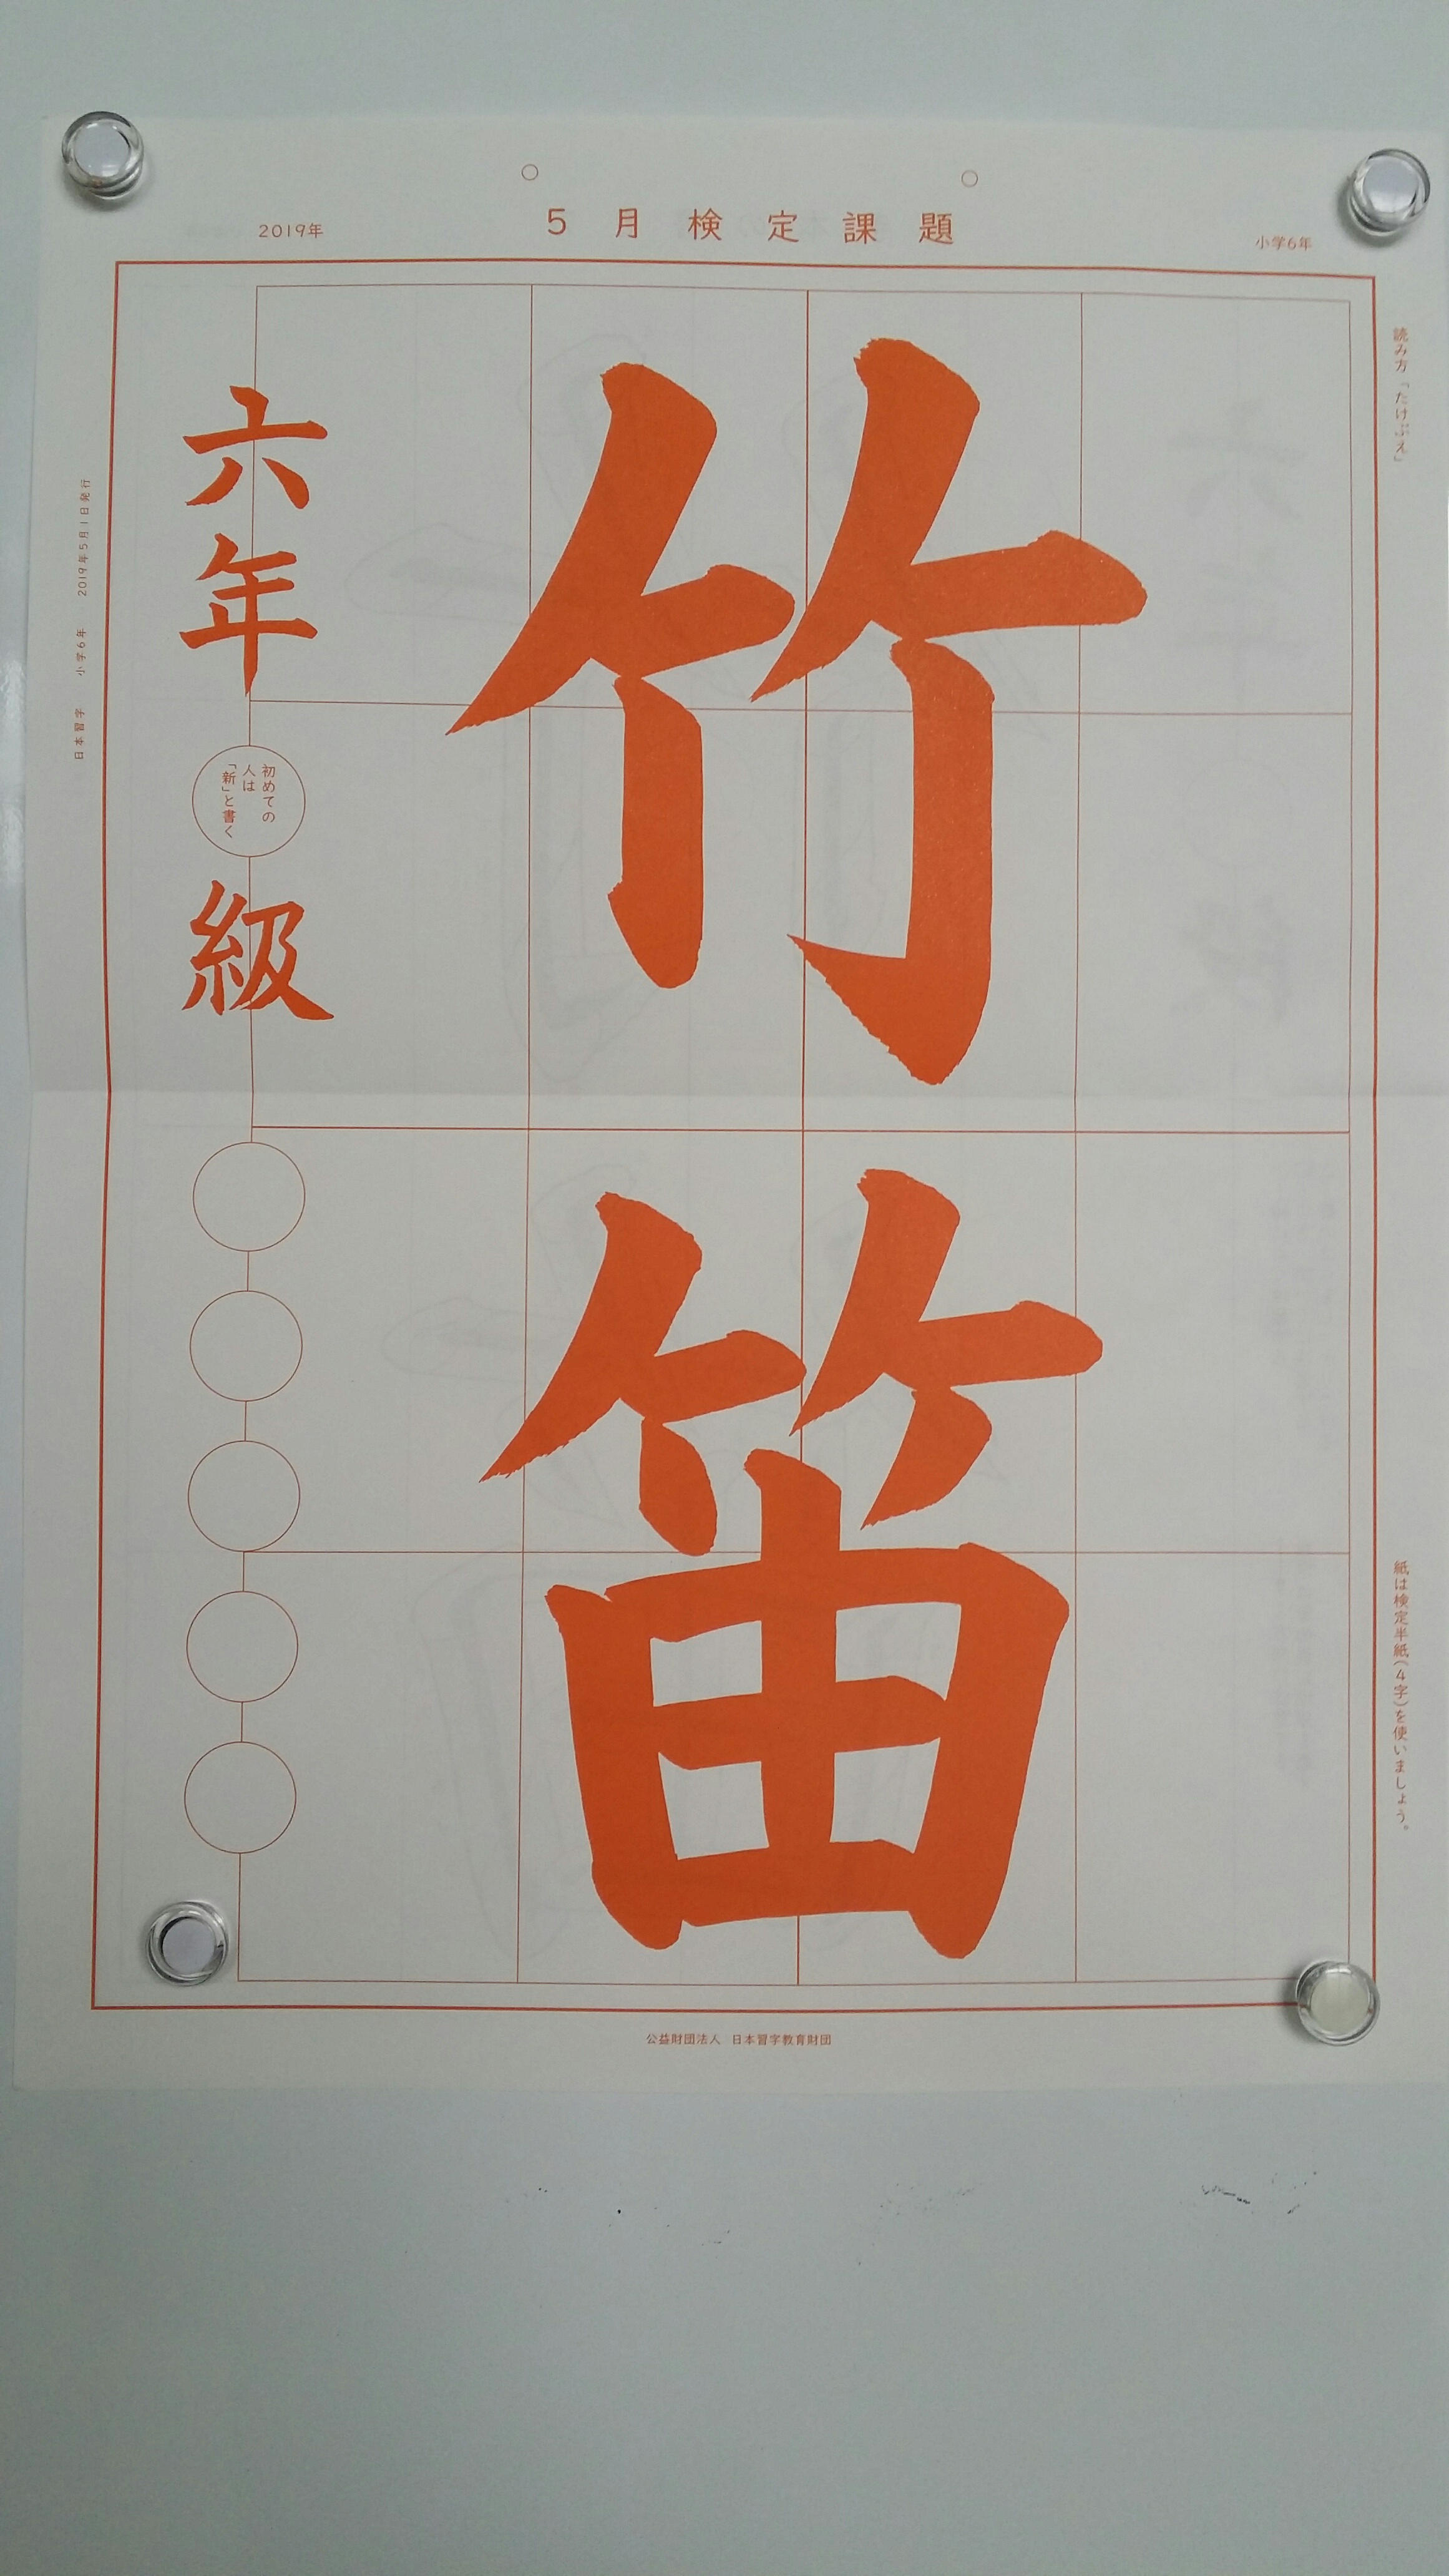 2019年
5月検定課題
小学6年
読み方「たけぶえ」
竹笛
六年
初めての
人は
「新」と書く
級
紙は検定半紙(4字)を使いましょう。
日本習字 小学6年 2019年5月1日発行
公益財団法人 日本習字教育財団